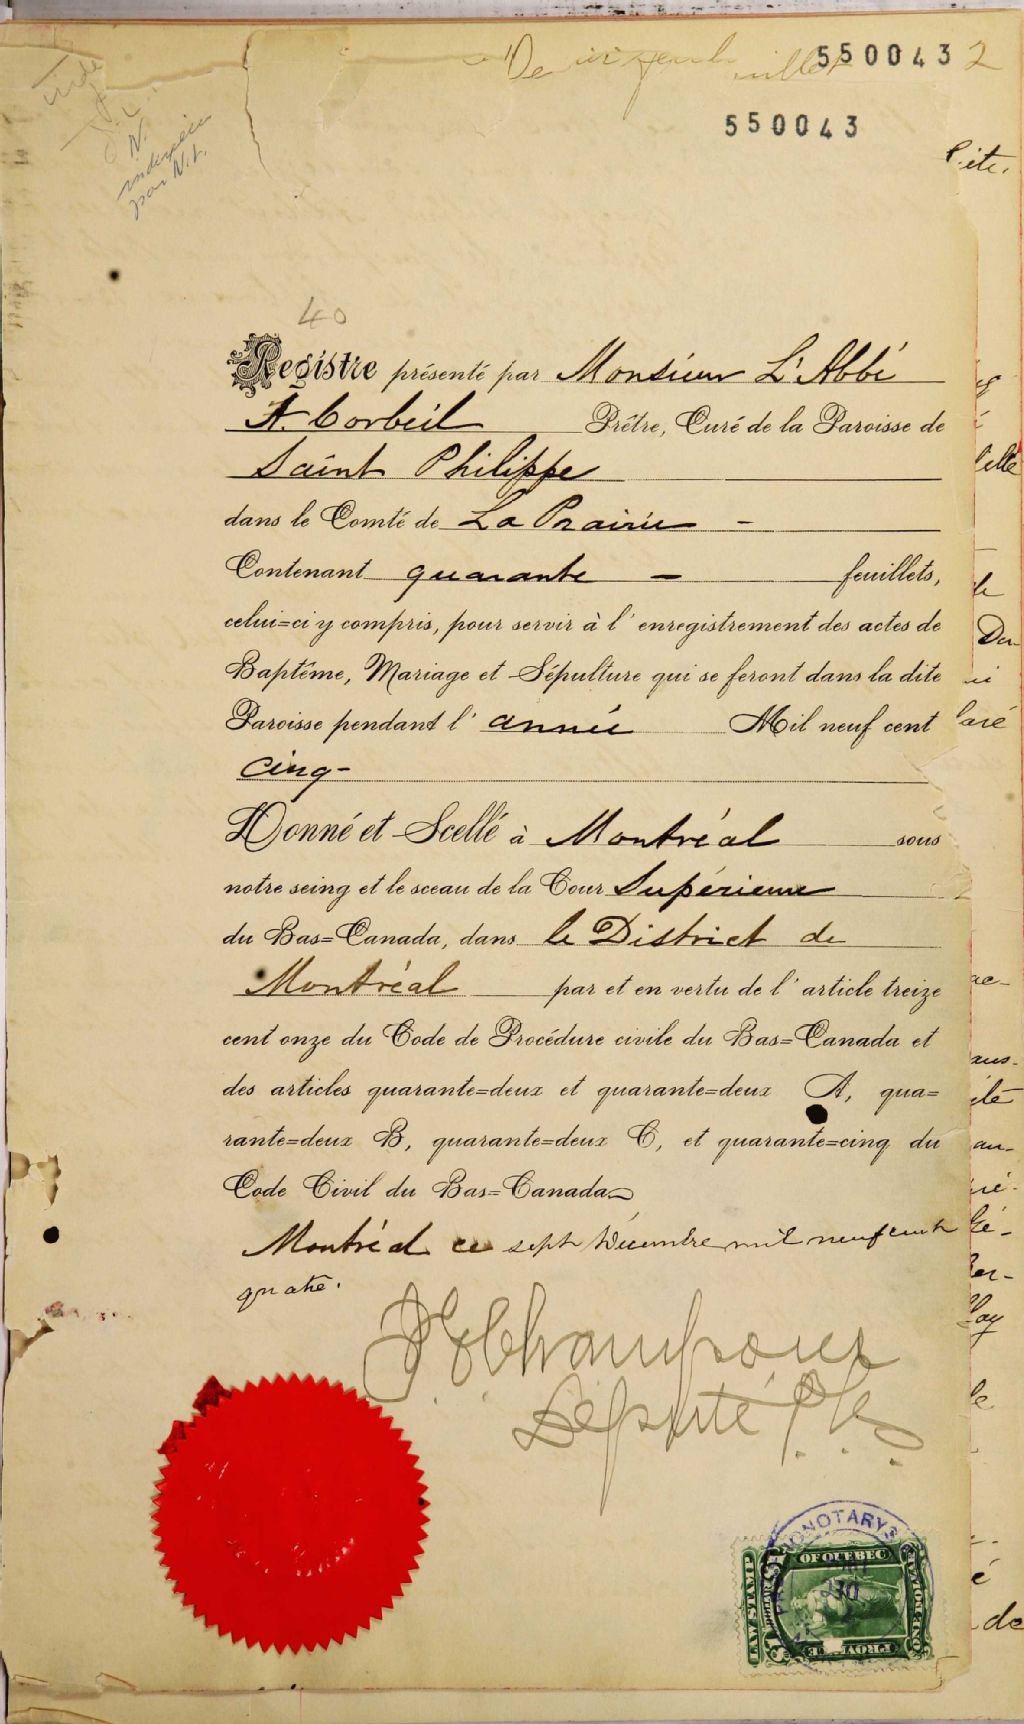 550043 2
550043
N.
par N.L.
l'ete.
40
Registre présenté par Monsieur L'Abbé
A. Corbeil Prêtre, Curé de la Paroisse de
Saint Philippe
dans le Comté de La Prairie -
Contenant quarante - feuillets,
celui=ci y compris, pour servir à l'enregistrement des actes de
Baptême, Mariage et Sépulture qui se feront dans la dite
Paroisse pendant l'année Mil neuf cent
cinq-
Donné et Scellé à Montréal sous
notre seing et le sceau de la Cour Supérieure
du Bas=Canada, dans le District de
Montréal par et en vertu de l'article treize
cent onze du Code de Procédure civile du Bas=Canada et
des articles quarante=deux et quarante=deux A, qua=
rante=deux B, quarante=deux C, et quarante=cinq du
Code Civil du Bas=Canada
Montréal ce sept Décembre mil neuf cent
quatre.
Député P.C.S.
PROTONOTARY'S
LAW STAMP
PROVINCE OF QUEBEC
de